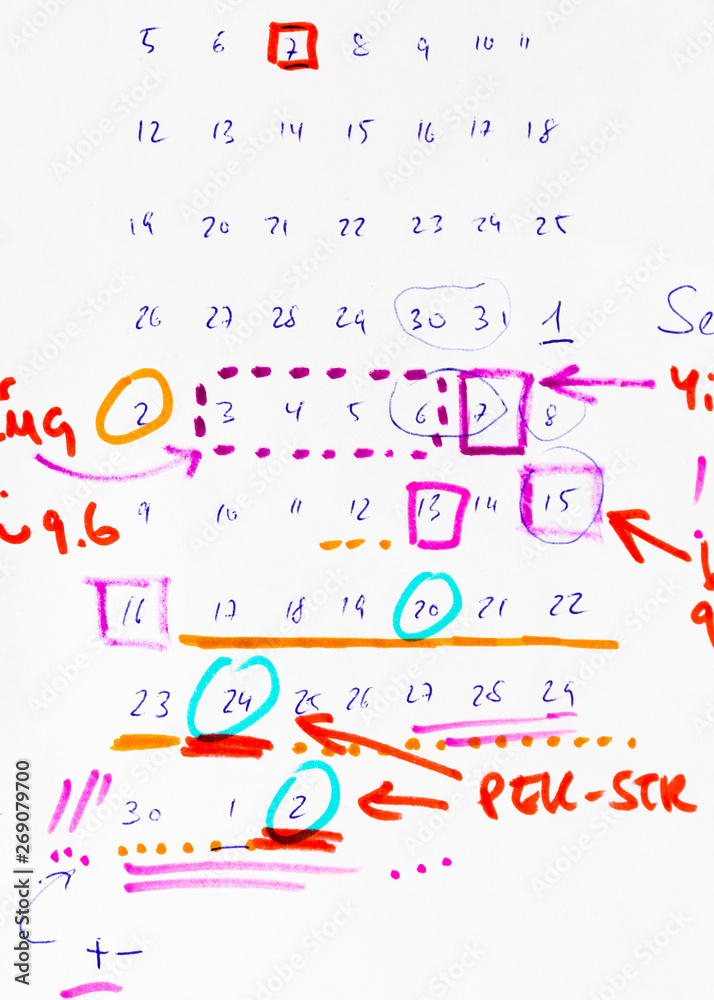 5 6 7 8 9 10 11
12 13 14 15 16 17 18
19 20 21 22 23 24 25
26 27 28 29 30 31 1 Se
2 3 4 5 6 7 8 Yi
9 10 11 12 13 14 15
9.6
16 17 18 19 20 21 22
23 24 25 26 27 28 29
PEK-STR
30 1 2
+-
Adobe Stock | #269079700